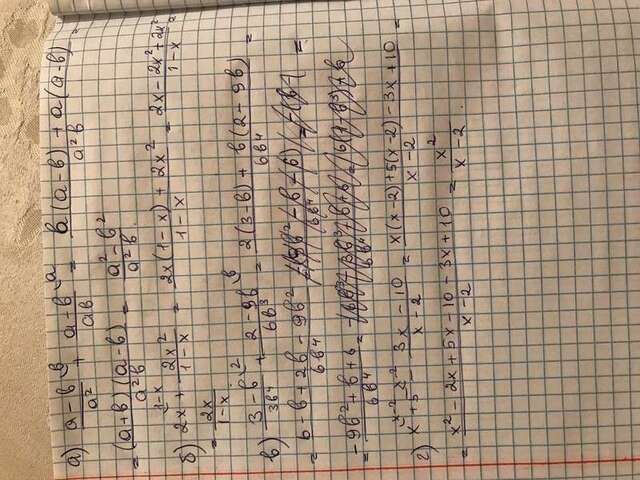 а) (a-b)/a² ᵇ + (a-b)/ab ᵃ = (b(a-b)+a(a-b))/a²b =
= ((a+b)(a-b))/a²b = (a²-b²)/a²b.
б) 2x ¹⁻ˣ + 2x²/(1-x) = (2x(1-x)+2x²)/(1-x) = (2x-2x²+2x²)/(1-x) =
= 2x/(1-x).
в) (3-b)/3b⁴ ² + (2-9b)/6b³ ᵇ = (2(3-b)+b(2-9b))/6b⁴ =
= (6-b+2b-9b²)/6b⁴ =
= (-9b²+b+6)/6b⁴ =
г) x ˣ⁻² + 5 ˣ⁻² - (3x-10)/(x-2) = (x(x-2)+5(x-2)-3x+10)/(x-2) =
= (x²-2x+5x-10-3x+10)/(x-2) = x²/(x-2).